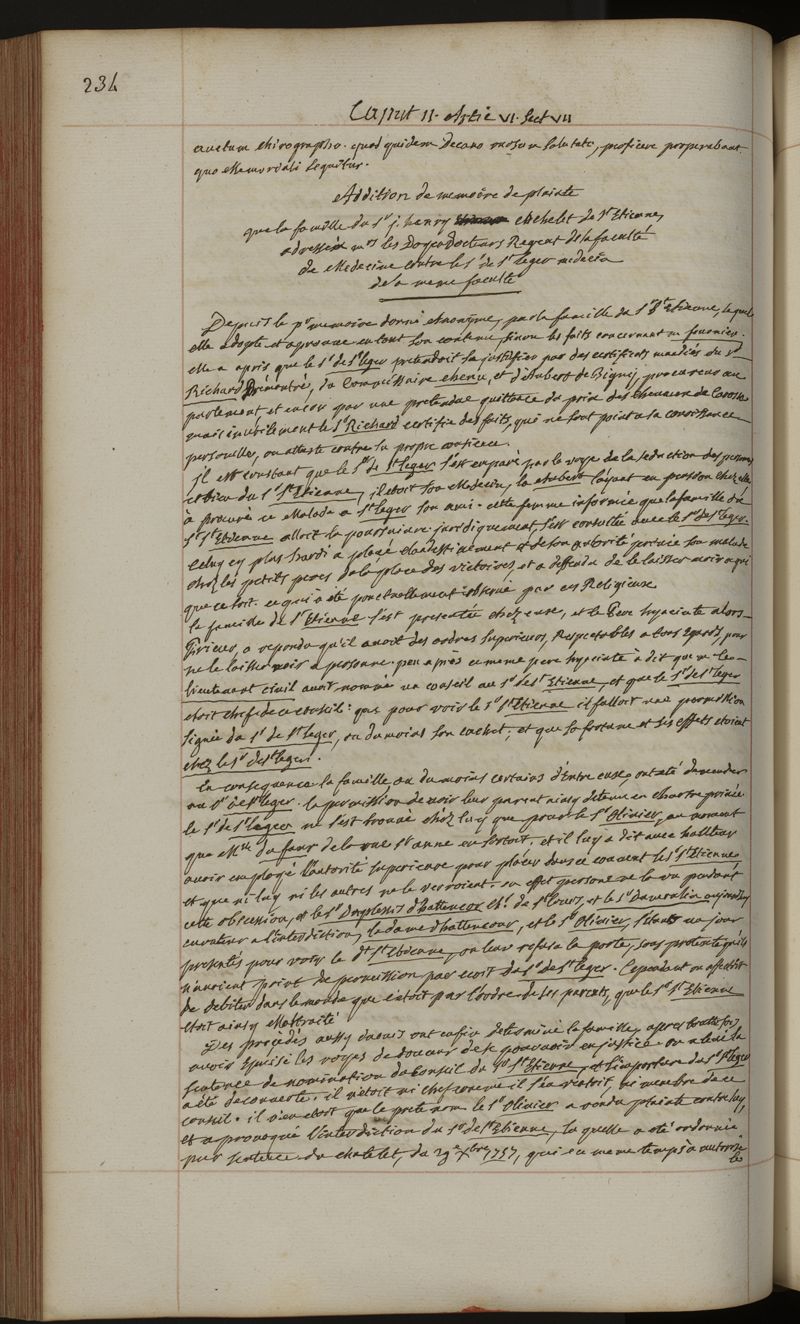 234
Caput II. Artic VI. Sect VII
auctum chirographo. quod quidem Decano salutato, proficere properabant
quo Memoriali sequitur.
Addition de memoire de plainte
que la famille du Sr j. henry Michelet de St Etienne,
adresse à mrs les Doyen Docteurs Regent de la faculté
de Medecine contre le Sr de St Leger medecin
de la meme faculté
Depuis le pr memoire donné et anonÿme, par la famille du Sr St Etienne, lequel
elle adopte et aprouve en tout son contenu sinon les faits concernant un fournier.
elle a apris que le Sr de St leger pretendoit se justifier par des certificats mandiés du Sr
Richard Prémontré, du Commissaire chenu, et d'Aubert de Bigny, procureur au
parlement et encor par une pretendue quittance du prix des chevaux de Carosse
mais inutilement le Sr Richard certifie des faits, qui ne sont point a sa conoissance
personelle, ou atteste contre sa propre conscience.
jl est constant que le Sr de St leger s'est emparé par la voye de la seduction des personne
et bien du Sr St Etienne, il etoit son Medecin, la aubert l'ayant en pension chez elle
à procuré ce Malade a St leger son ami. cette femme informée que la famille du
Sr St Etienne alloit la poursuivre juridiquement, s'est consultée avec le Sr de St leger.
celuy cy plus hardi a placé clandestinement et de son autorité privée son malade
chez les petits peres de la place des victoires, et a deffendu de le laisser voir a qui
que ce soit. ce qui a été ponctuellement observé par ces Religieux
la famille de St Etienne s'est presentée chez eux, et le Pere hyacinte alors
Prieur, a repondu qu'il avoit des ordres superieurs, Respectables a tous egards, pour
ne le laisser voir a personne. peu après ce meme pere hyacinte à dit que mr le
lieutenant civil avoit nommé un conseil au Sr de St Etienne, et que le Sr de St leger
etoit chef de ce conseil: que pour voir le Sr St Etienne il falloit une permission
signée du Sr de St leger, ou du moins son cachet; et que sa fortune et ses effets etoient
chez le Sr de St leger.
En consequence la famille, ou du moins certains d'entre eux, ont été demander
au Sr de St leger la permission de voir leur parent ainsy detenu en chartre privée
le Sr de St leger ne s'est trouvé chez luy que pour le Sr Olivier, au moment
que Mlle du four de la rue Ste anne en sortoit, et il luy a dit avec hauteur
avoir employé l'autorité superieure pour placer dans ce couvent le Sr St Etienne
et que ni luy ni les autres ne le verroient. en effet personne ne l'a vu pendant
cette obsession, et le Sr Duplessis d'hattencour Chr. de St Louis, et le Sr aujourdhuy
curateur a l'interdiction, la dame d'hattencour, et le Sr Olivier, s'etant un jour
presentés pour voir le dt St Etienne, on leur refusa la porte, sous pretexte qu'ils
n'avoient point de permission par ecrit du Sr de St leger. Cependant on affectoit
de debiter dans le monde que c'etoit par l'ordre de ses parents, que le Sr St Etienne
etoit ainsy Maltraité
Des procedés aussy durs ont enfin determiné la famille, apres toutefois
avoir epuisé les voyes de douceur de se pourvoir en justice. on a levé la
sentence de nomination du Conseil du Sr St Etienne, et l'imposture du Sr St leger
a été decouverte. il n'etoit ni chef comme il s'en ventoit, ni membre de ce
conseil. il n'en etoit que le prete nom. le Sr Olivier a rendu plainte contre luy,
et a provoqué l'interdiction du Sr de St Etienne, la quelle a été ordonnée
par sentence du chatelet, du 29 e Xbre 1757, qui en meme temps à autorisé
le